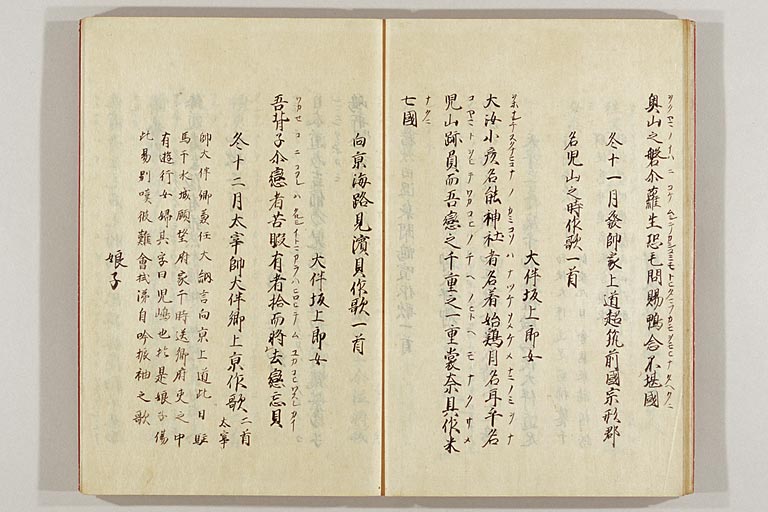 奥山之磐尓蘿生恐毛問賜鴨念不堪國
冬十一月發帥家上道超筑前國宗形郡
名児山之時作歌一首
大伴坂上郎女
大汝小彦名能神社者名着始鶏目名耳乎名
児山跡負而吾戀之千重之一重裳奈具作米
七國
向京海路見濱貝作歌一首
大伴坂上郎女
吾背子尓戀者苦暇有者拾而将去戀忘貝
冬十二月太宰帥大伴卿上京作歌二首
太宰
帥大伴卿兼任大納言向京上道此日駐
馬于水城顧望府家于時送卿府吏之中
有遊行女婦其字曰児嶋也於是娘子傷
此易別嘆彼難會拭涕自吟振袖之歌
娘子